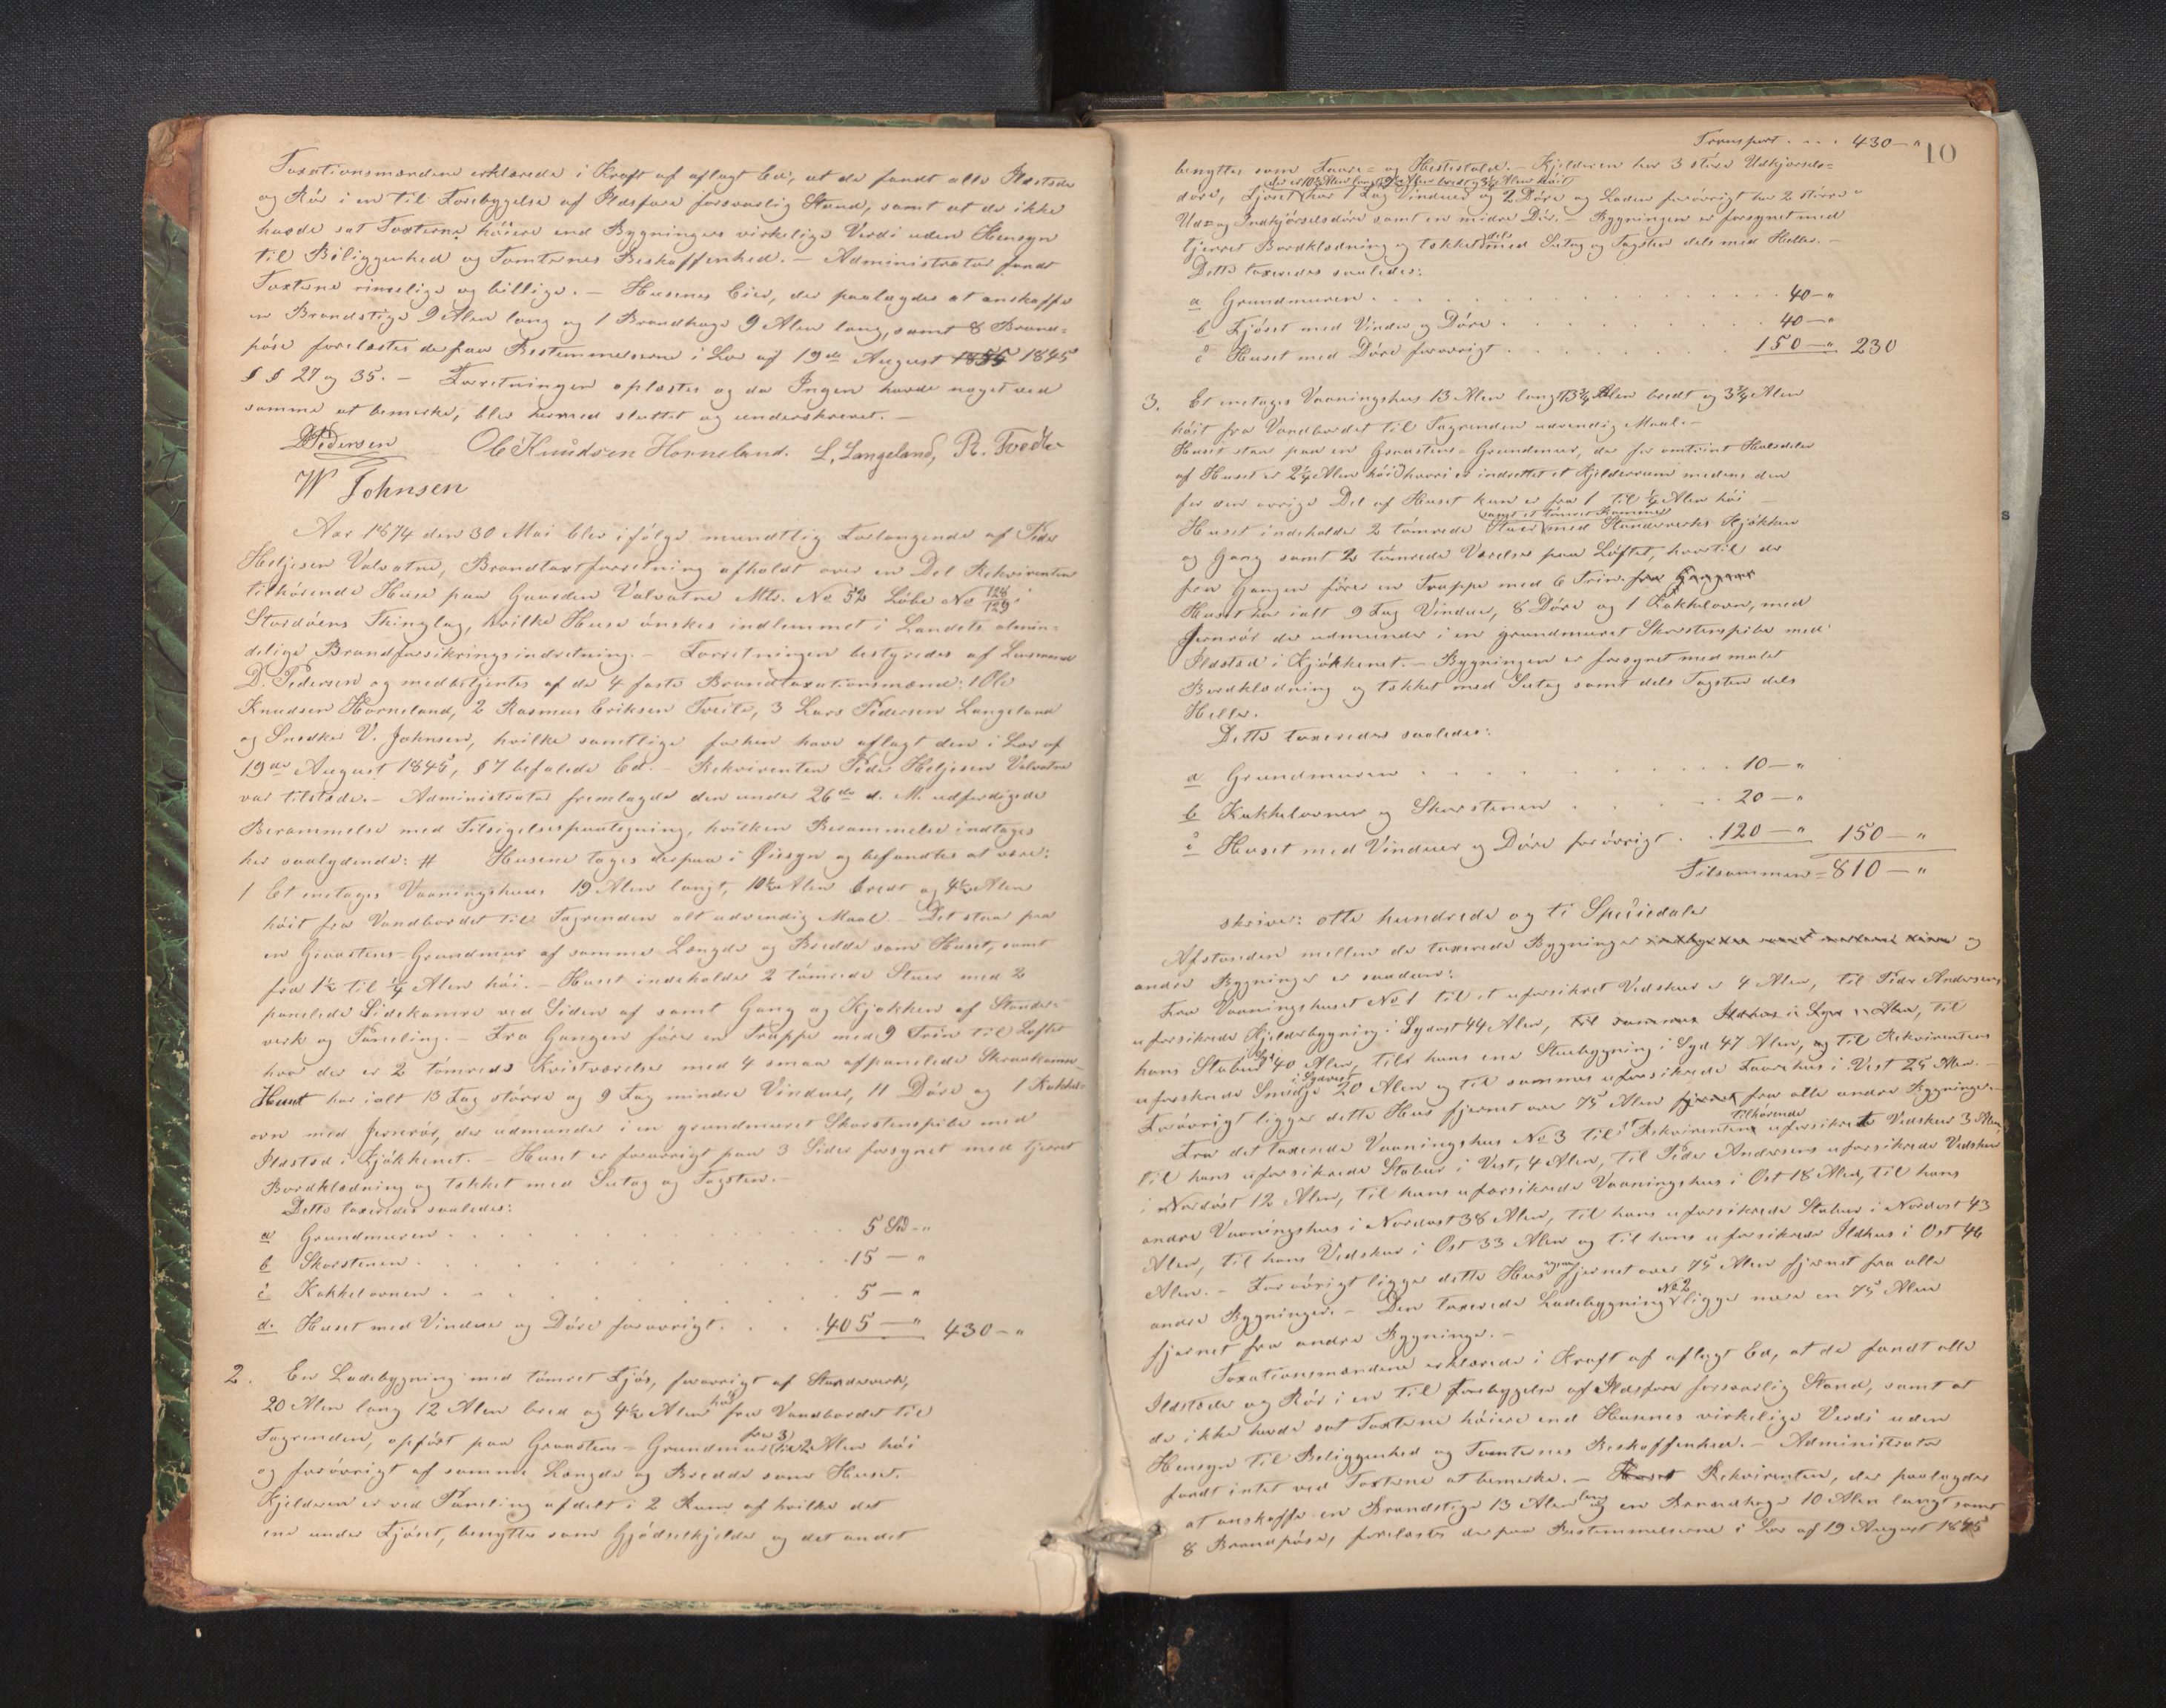 Taxationsmændene erklærede i Kraft af aflagt Ed, at de fandt alle Ildstede
og Rör i en til Forebyggelse af Ildsfare forsvarlig Stand, samt at de ikke
havde sat Taxterne höiere end Bygningers virkelige Verdi uden Hensyn
til Beliggenhed og Tomternes Beskaffenhed. – Administrator fandt
Taxterne rimelige og billige. – Husenes Eier, der paalagdes at anskaffe
en Brandstige 9 Alen lang og 1 Brandhage 9 Alen lang, samt 8 Brand=
pöse forelæstes derpaa Bestemmelserne i Lov af 19de August 1855 1845
§ § 27 og 35. – Forretningen oplæstes og da Ingen havde noget ved
samme at bemerke, blev hermed sluttet og underskrevet. –
DPedersen Ole Knudsen Horneland. L. Langeland, R. Tvedte
W Johnsen
Aar 1874 den 30 Mai blev ifölge mundtlig Forlangende af Peder
Heljesen Valvatne, Brandtaxtforretning afholdt over en Del Rekvirenten
tilhörende Huse paa Gaarden Valvatne Mtr. No 52 Löbe No 128/129 i
Stordöens Thinglag, hvilke Huse önskes indlemmet i Landets almin=
delige Brandforsikringsindretning. – Forretningen bestyredes af Lensmand
D. Pedersen og medbetjentes af de 4 faste Brandtaxationsmænd: 1 Ole
Knudsen Horneland, 2 Rasmus Eriksen Tveite, 3 Lars Pedersen Langeland
og Snedker V. Johnsen, hvilke samtlige forhen have aflagt den i Lov af
19de August 1845, § 7 befalede Ed. – Rekvirenten Peder Heljesen Valvatne
var tilstede. – Administrator fremlagde den under 26de d. M. udferdigede
Berammelse med Tilsigelsespaategning, hvilken Berammelse indtages
her saalydende: # Husene toges derpaa i Öiesyn og befandtes at være:
1 Et etages Vaaningshus 19 Alen langt, 10½ Alen bredt og 4½ Alen
höit fra Vandbordet til Tagrenden alt udvendig Maal – Det staar paa
en Graastens-Grundmur af samme Længde og Bredde som Huset, samt
fra 1½ til ¼ Alen höi. – Huset indeholder 2 tömrede Stuer med 2
panelede Sidekamre ved Siden af samt Gang og Kjökken af Stender=
verk og Paneling. – Fra Gangen förer en Trappe med 9 Trin til Loftet
hvor der er 2 tömrede Kvistværelser med 4 smaa afpanelede Skraakamre
Huset har ialt 13 Fag större og 9 Fag mindre Vinduer, 11 Döre og 1 Kakkel=
ovn med Jernrör, der udmunder i en grundmuret Skorstenspibe med
Ildsted i Kjökkenet. – Huset er forövrigt paa 3 Sider forsynet med tjerret
Bordklædning og tækket med Sutag og Tagsten. –
Dette taxeredes saaledes:
a Grundmuren . . . 5 Spd – „
b Skorstenen . . . 15 – „
c Kakkelovnen . . . 5 – „
d. Huset med Vinduer og Döre forövrigt. . . . 405 – „ 430 – „
2. En Ladebygning med tömret Fjös, forövrigt af Stenderverk,
20 Alen lang 12 Alen bred og 4½ Alen höi fra Vandbordet til
Tagrenden, opfört paa Graastens-Grundmur fra 3 til 2 Alen höi
og forövrigt af samme Længde og Bredde som Huset. –
Kjelderen er ved Paneling afdelt i 2 Rum af hvilke det
ene under Fjöset, benyttes som Gjödselkjelder og det andet
Transport . . . 430 – „
10
benyttes som Faare= og Hestestald. – Kjelderen har 3 större Udkjörsels=
döre, Fjöset der er 10½ Alen langt 9½ Alen bredt og 3¼ Alen höit har 1 Fag Vinduer og 2 Döre og Laden forövrigt har 2 större
Ud= og Indkjörselsdöre samt en mindre Dör. – Bygningen er forsynet med
tjerret Bordklædning og tækket dels med Sutag og Tagsten dels med Heller. –
Dette taxeredes saaledes:
a Grundmuren . . . 40 – „
b Fjöset med Vinduer og Döre . . . 40 – „
c Huset med Döre forövrigt . . . 150 – „ 230
3. Et etages Vaaningshus 13 Alen langt 13¾ Alen bredt og 3¾ Alen
höit fra Vandbordet til Tagrenden udvendig Maal. –
Huset staar paa en Graastens-Grundmur, der for omtrent Halvdelen
af Huset er 2¼ Alen höi hvori er indrettet et Kjelderrum medens den
for den övrige Del af Huset kun er fra 1 til ¼ Alen höi –
Huset indeholder 2 tömrede Stuer samt et tömret Kammer med Stenderverks Kjökken
og Gang samt 2 tömrede Værelser paa Loftet, hvortil der
fra Gangen förer en Trappe med 6 Trin. fra Gangen
Huset har ialt 9 Fag Vinduer, 8 Döre og 1 Kakkelovn, med
Jernrör der udmunder i en grundmuret Skorstenspibe med
Ildsted i Kjökkenet. – Bygningen er forsynet med malet
Bordklædning og tækket med Sutag samt dels Tagsten dels
Heller.
Dette taxeredes saaledes:
a Grundmuren . . . 10 – „
b Kakkelovnen og Skorstenen . . . 20 – „
c Huset med Vinduer og Döre forövrigt . 120 – „ 150 – „
Tilsammen = 810 – „
skriver: otte hundrede og ti Speciedaler
Afstanden mellem de taxerede Bygninger og
andre Bygninger er saadan:
Fra Vaaningshuset No 1 til et uforsikret Vedskur er 4 Alen, til Peder Andersens
uforsikrede Kjelderbygning i Sydost 44 Alen, til sammes Ildhus i Syd Alen, til
hans Stabur i Syd 40 Alen, til hans ene Stuebygning i Syd 47 Alen, og til Rekvirentens
uforsikrede Smedje i Sydvest 20 Alen og til sammes uforsikrede Faarehus i Vest 25 Alen. –
Forövrigt ligger dette Hus fjernet over 75 Alen fjernet fra alle andre Bygninger. –
Fra det taxerede Vaaningshus No 3 til et Rekvirenten tilhörende uforsikret Vedskur 3 Alen,
til hans uforsikrede Stabur i Vest, 4 Alen, til Peder Andersens uforsikrede Vedskur
i Nordöst 12 Alen, til hans uforsikrede Vaaningshus i Ost 18 Alen, til hans
andre Vaaningshus i Nordost 38 Alen, til hans uforsikrede Stabur i Nordost 43
Alen, til hans Vedskur i Ost 33 Alen og til hans uforsikrede Ildhus i Ost 46
Alen. – Forövrigt ligger dette Hus fjernet over 75 Alen fjernet fra alle
andre Bygninger. – Den taxerede Ladebygning No 2 ligger mere en 75 Alen
fjernet fra andre Bygninger. –
Taxationsmændene erklærede i Kraft af aflagt Ed, at de fandt alle
Ildsteder og Rör i en til Forebyggelse af Ildsfare forsvarlig Stand, samt at
de ikke havde sat Taxterne höiere end Husenes virkelige Verdi uden
Hensyn til Beliggenhed og Tomternes Beskaffenhed. – Administrator
fandt intet ved Taxterne at bemerke. – Huset Rekvirenten, der paalagdes
at anskaffe en Brandstige 13 Alen lang og en Brandhage 10 Alen langt samt
8 Brandpöse, forelæstes derpaa Bestemmelserne i Lov af 19 August 1845